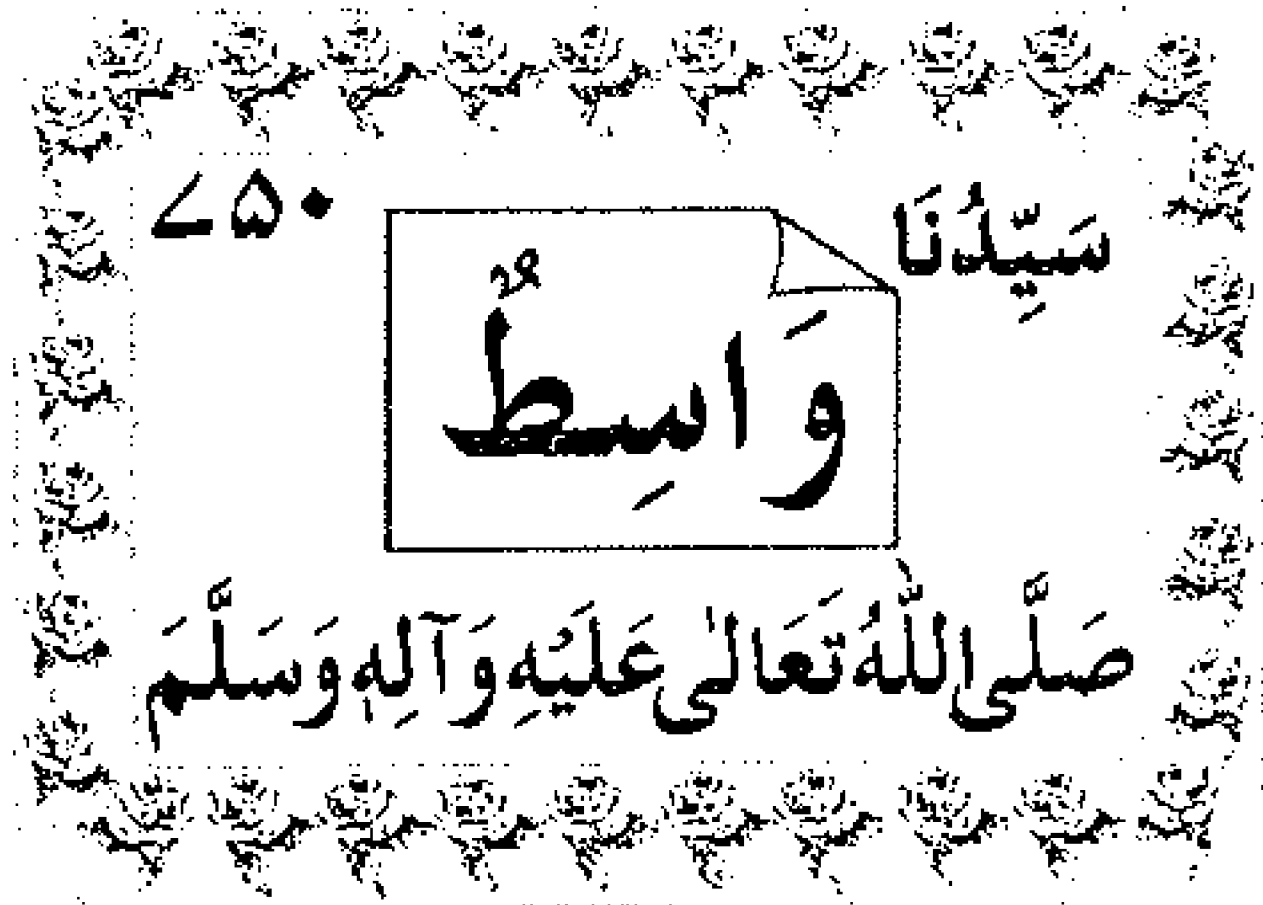 سَيِّدُنَا
۷۵۰
وَاسِطٌ
صَلَّى اللّٰهُ تَعَالٰى عَلَيْهِ وَآلِهٖ وَسَلَّمَ